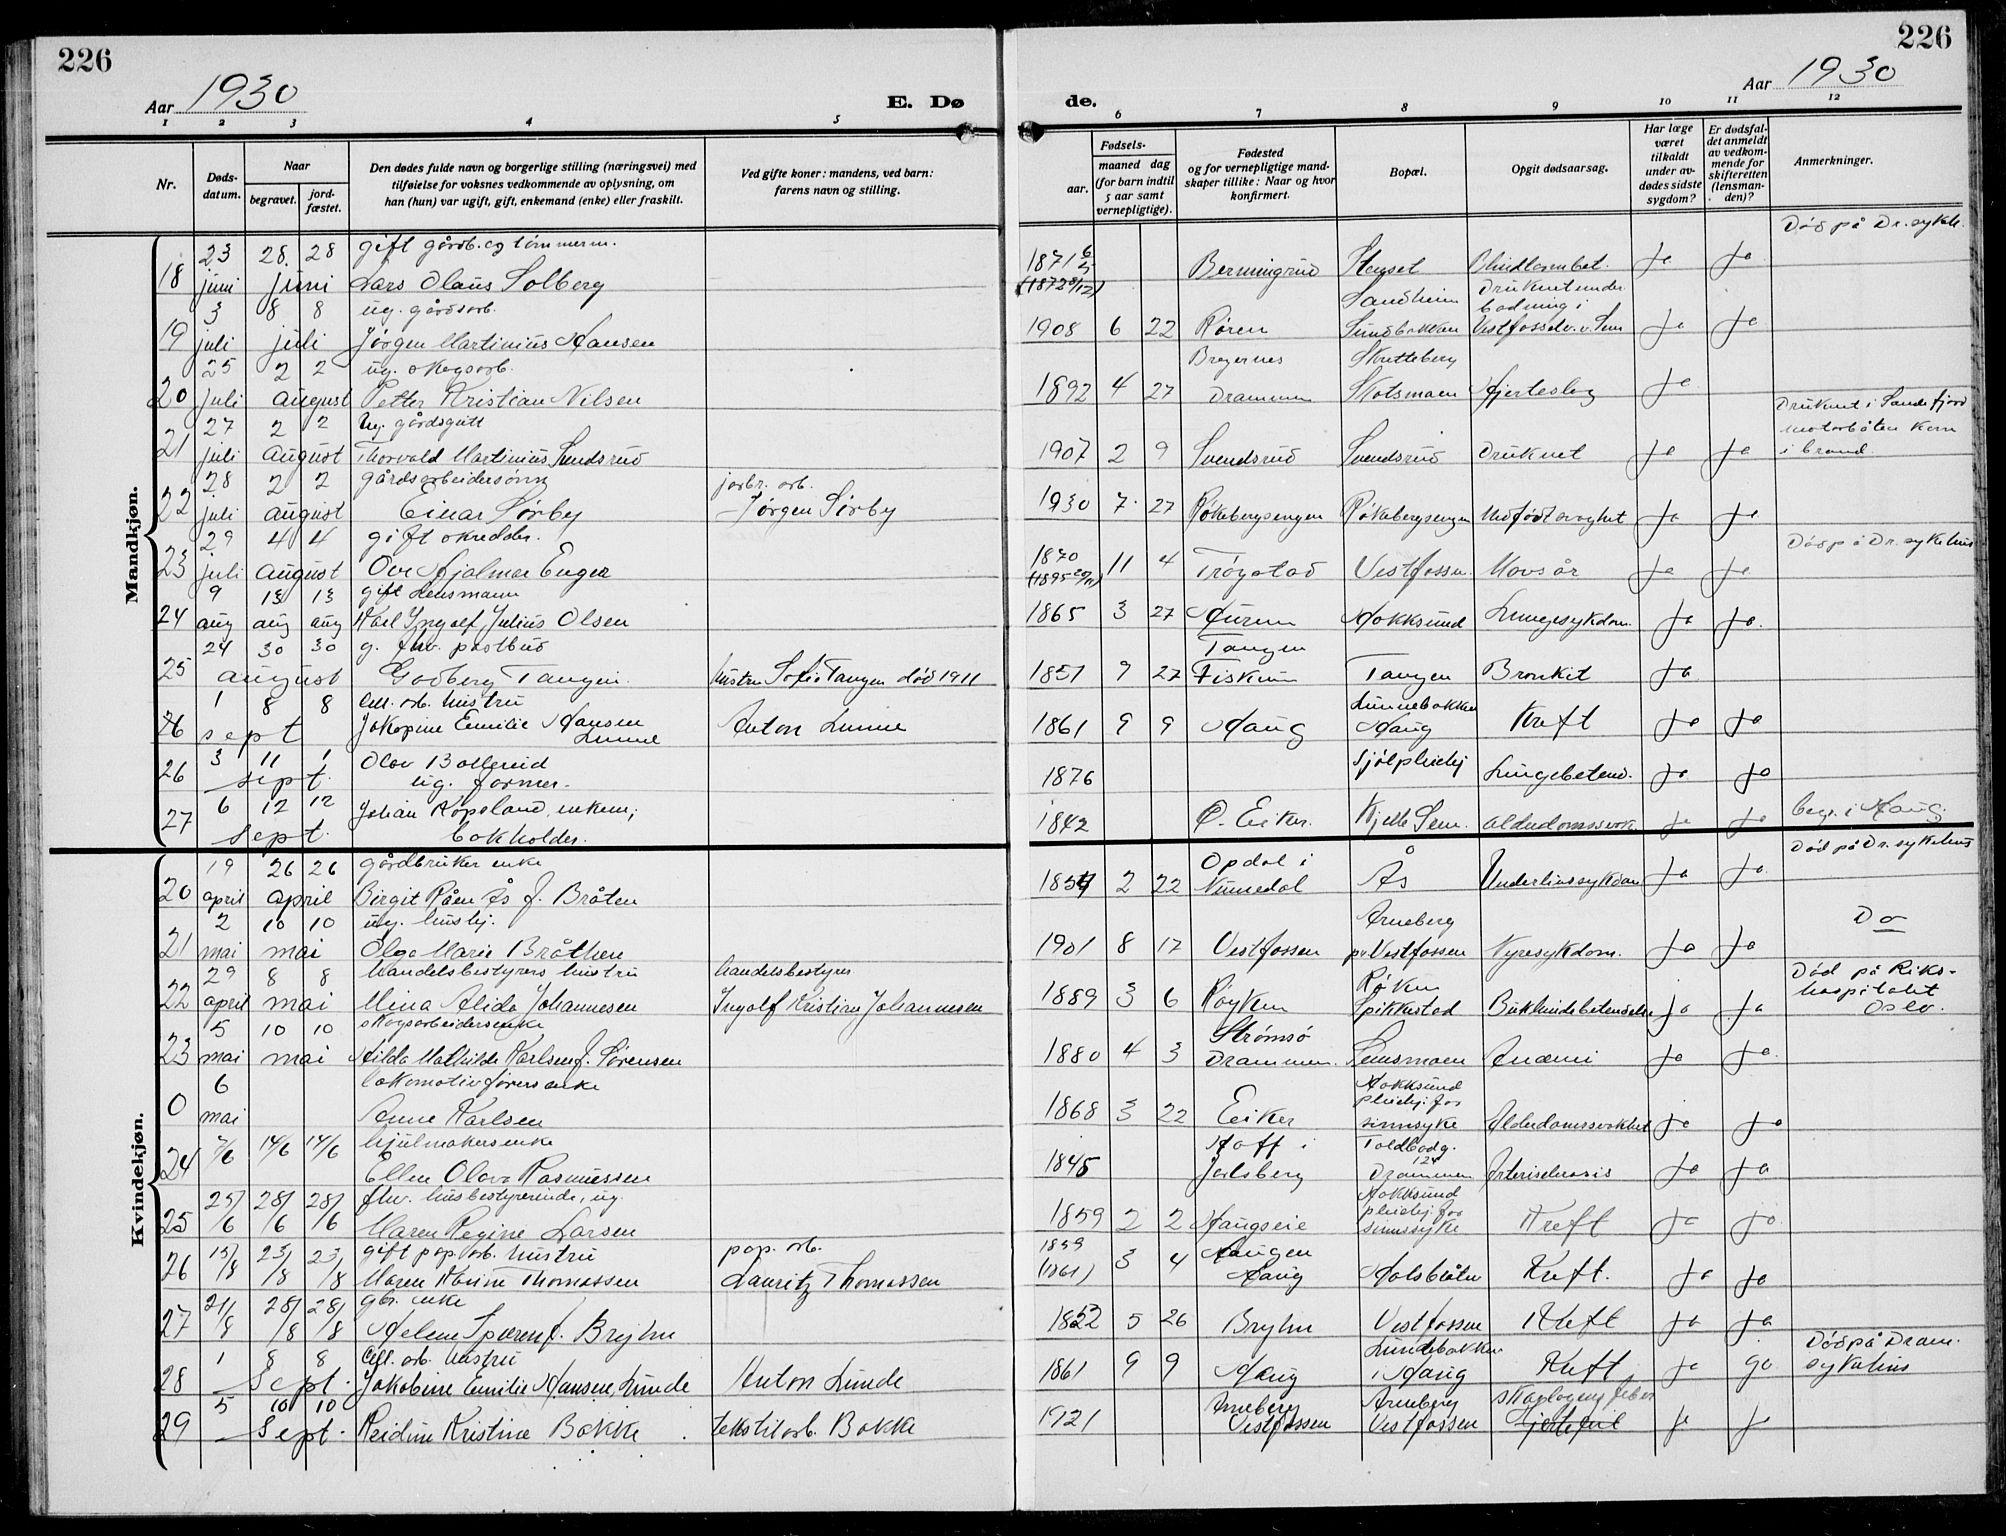 226
226
Aar 1930
E. Dø
de.
Aar 1930
1 2 3 4 5 6 7 8 9 10 11 12
Nr.
Døds-
datum.
Naar
begravet.
jord-
fæstet.
Den dødes fulde navn og borgerlige stilling (næringsvei) med
tilføielse for voksnes vedkommende av oplysning, om
han (hun) var ugift, gift, enkemand (enke) eller fraskilt.
Ved gifte koner: mandens, ved barn:
farens navn og stilling.
Fødsels-
aar.
maaned dag
(for barn indtil
5 aar samt
vernepligtige).
Fødested
og for vernepligtige mand-
skaper tillike: Naar og hvor
konfirmert.
Bopæl.
Opgit dødsaarsag.
Har læge
været
tilkaldt
under av-
dødes sidste
sygdom?
Er dødsfal-
det anmeldt
av vedkom-
mende for
skifteretten
(lensman-
den)?
Anmerkninger.
Mandkjøn.
23 28. 28 gift gårdb. og tømmerm. Død på Dr. sykh.
18 juni juni Lars Olaus Solberg 1871 6/5 (1872 8/12) Bermingrud Stenset Ja Ja
3 8 8 ug. gårdsarb. Sandheim Druknet under
badning i
19 juli juli Jørgen Martinius Hansen 1908 6 22 Røren Sundbakken Vestfosselv. v. Sem Ja Ja
25 2 2 ug. skogsarb. Bragernes Skutteberg
20 juli august Petter Kristian Nilsen 1892 4 27 Drammen Skotsmoen Hjerteslag Ja
27 2 2 Ug. gårdsgutt Druknet i Sandefjord
motorbåten kom
21 juli august Thorvald Martinius Sundsrud 1907 2 9 Svendsrud Svendsrud Druknet Ja Ja i brand
28 2 2 gårdsarbeidersønn jorbr. arb.
22 juli august Einar Sørby Jørgen Sørby 1930 7 27 Røkebergsengen Røkebergsengen Medfødt svaghet Ja Ja
29 4 4 gift skredder. Død på Dr. sykehus
23 juli august Ove Hjalmar Enger 1870 (1895 20/11) 11 4 Trøgstad Vestfossen Ja Ja
9 13 13 gift Lensmann
24 aug aug aug Karl Ingolf Julius Olsen 1865 3 27 Aurum Hokksund Lungesykdom. Ja Ja
24 30 30 g. fhv. postbud Tangen
25 august Godberg Tangen. hustru Sofie Tangen død 1911 1851 9 27 Fiskum Tangen Bronkit Ja
1 8 8 Cell. arb. hustru Lunnebakken
26 sept Jakopine Emilie Hansen
Lunne Anton Lunne 1861 9 9 Haug Haug Kreft Ja Ja
3 11 1 Olav Bollereid
26 sept. ug. farmer. 1876 Fjølpleiehj Lungebetend. Ja Ja
6 12 12 Johan Kopeland, enkem;
27 sept. bokholder. 1842 Ø. Eiker. Kjelle Sem. Alderdomssvak. Ja Ja begr. i Haug.
Kvindekjøn.
19 26 26 gårdbruker enke Opdal i Død på Dr. sykehus
20 april april Birgit Råen Ås f. Bråten 1854 2 22 Numedal Ås Underlivssykdom Ja Ja
2 10 10 ug. hushj. Arneberg
21 mai mai Olga Marie Bråthen 1901 8 17 Vestfossen pr. Vestfossen Nyresykdom. Ja Ja Do
29 8 8 Handelsbestyrers hustru handelsbestyrer Røken Død på Riks-
hospitalet
22 april mai Mina Alida Johannesen Ingolf Kristian Johannesen 1889 3 6 Røyken Spikkestad Bukhindebetendelse Ja Ja Oslo.
5 10 10 skogsarbeidersenke Strømsø
23 mai mai Hilda Mathilde Karlsen f. Sørensen 1880 4 3 Drammen. Semsmoen Anæmi Ja Ja
6 lokomotivførers enke Hokksund
pleiehj. for
0 mai Anne Karlsen 1868 3 22 Eiker sinnsyke Alderdomssvakhet Ja Ja
24 7/6 14/6 14/6 hjulmakersenke Hoff i Toldbodg. 124
Ellen Olava Rasmussen 1845 Jarlsberg Drammen Arteriskerosis Ja Ja
25/6 28/6 28/6 fhv. husbestyrerinde, ug. Hokksund
pleiehj. for
25 Maren Regine Larsen 1859 2 2 Haugseie sinnssyke Kreft Ja Ja
15/8 23/8 23/8 gift pap. arb. hustru pap. arb. 1859 Haugen
26 Maren Karine Thomassen Lauritz Thomassen (1861) 3 4 Haug Holsbråten Kreft. Ja Ja
21/8 28/8 28/8 gbr. enke
27 Helene Speren f. Bryhn 5 26 Bryhn Vestfossen Kreft Ja Ja
1 8 8 Cell. arb. hustru Lundebakken Død på Dram.
28 Sept. Jakobine Emilie Hansen, Lunde Anton Lunde 1861 9 9 Haug i Haug Kreft Ja Ja sykehus
5 10 10 Arneberg Arneberg Skarlagensfeber
29 Sept. Reidun Kristine Bakke tekstilarb. Bakke 1921 Vestfossen Vestfossen Hjertefeil Ja Ja